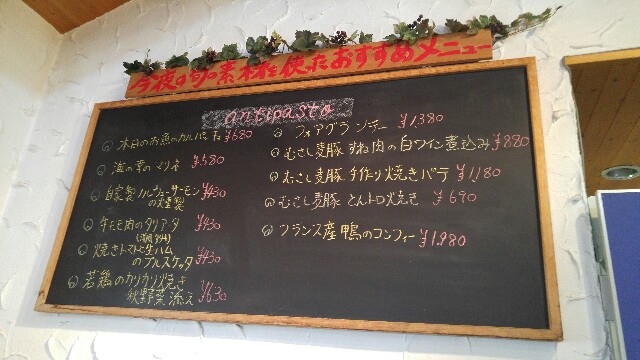 今夜の旬の素材を使ったおすすめメニュー
antipasto
本日のお魚のカルパッチョ ¥680
海の幸のマリネ ¥580
自家製ノルウェーサーモン
の燻製 ¥430
牛もも肉のタリアタ
¥430
焼きトマトと生ハム
のブルスケッタ ¥430
若鶏のカリカリ焼き
秋野菜添え ¥630
フォアグラソテー ¥1,380
むさし麦豚 すね肉の白ワイン煮込み ¥880
むさし麦豚 手作り焼きパテ ¥1,180
むさし麦豚 とんトロ焼き ¥690
フランス産鴨のコンフィー ¥1,980